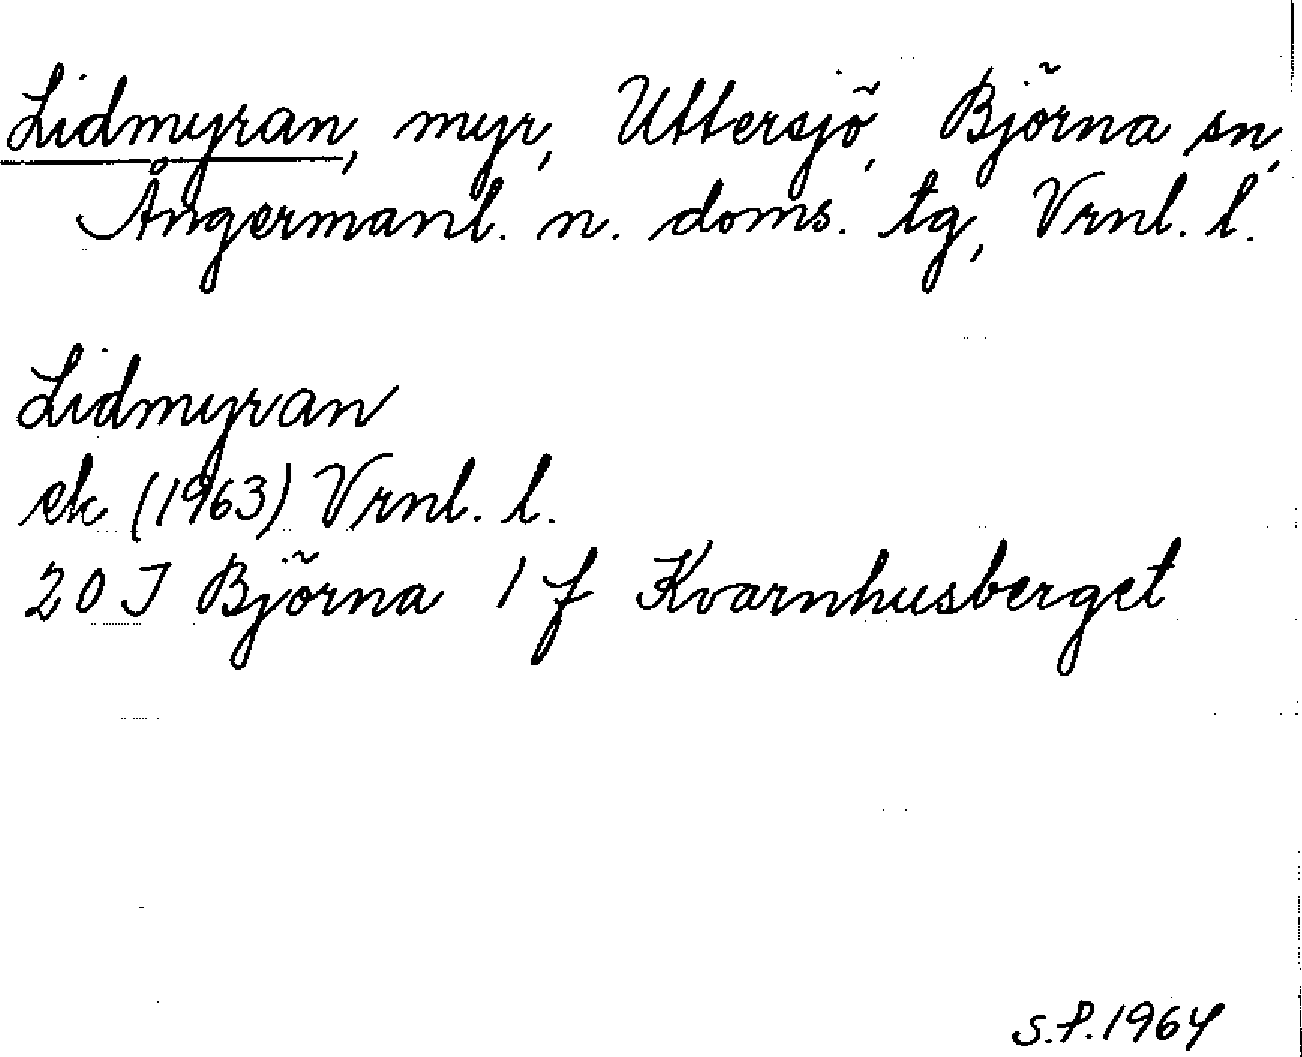 Lidmyran, myr, Uttersjö, Björna sn,
Ångermanl. n. doms. tg, Vrnl. l.
Lidmyran
ek (1963) Vrnl. l.
20 J Björna 1 f Kvarnhusberget
S.P. 1964